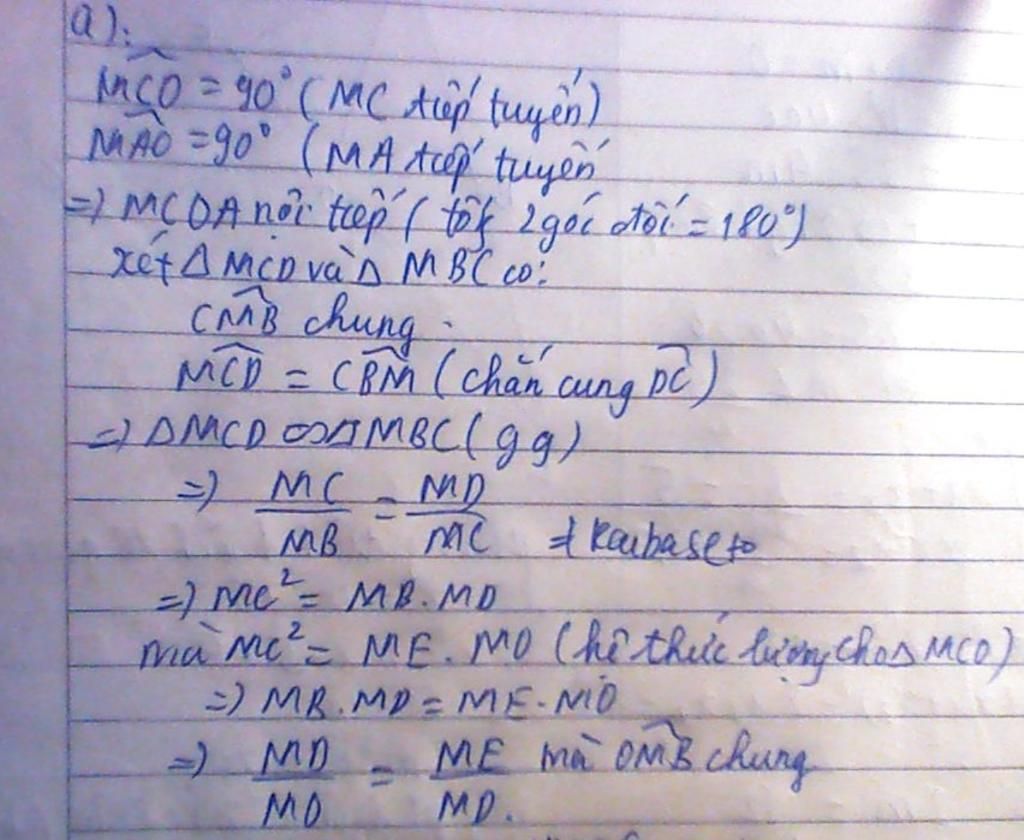 a):
MCO = 90° (MC tiếp tuyến)
MAO = 90° (MA tiếp tuyến
=) MCOA nội tiếp ( tổng 2 góc đối = 180°)
xét Δ MCD và Δ MBC có:
CMB chung.
MCD = CBM (chắn cung DC)
=) ΔMCD ∽ ΔMBC (gg)
=) MC/MB = MD/MC
=) MC² = MB.MD
mà MC² = ME.MO (hệ thức lượng cho Δ MCO)
=) MB.MD = ME.MO
=) MD/MO = ME/MD. mà OMB chung